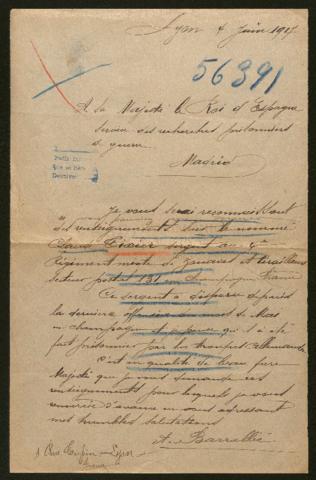 Lyon 4 Juin 1917
56391
A Sa Majesté le Roi d'Espagne
Service des recherches prisonniers
de guerre
Madrid
Je vous serai reconnaissant
des renseignements sur le nommé
sergent au 4e
Régiment mixte de Zouaves et tirailleurs
secteur postal 131 en Champagne France
Ce sergent a disparu depuis
la dernière offensive du mois de Mai
en champagne et a été
fait prisonnier par les troupes allemandes
C'est en qualité de beau frère
Majesté que je vous demande ces
renseignements pour lesquels je vous
remercie d'avance en vous adressant
mes humbles salutations
A. Barrallié
1 Rue Turpin Lyon